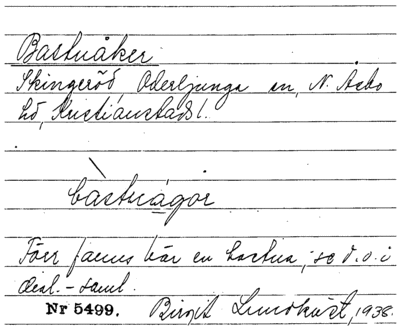 Bastuåker
Skingeröd, Oderljunga sn, N. Åsbo
hd, Kristianstads l.
bàstuågor
Förr fanns här en bastua, se d.o. i
dial.-saml.
Nr 5499. Birgit Lundkvist, 1938.